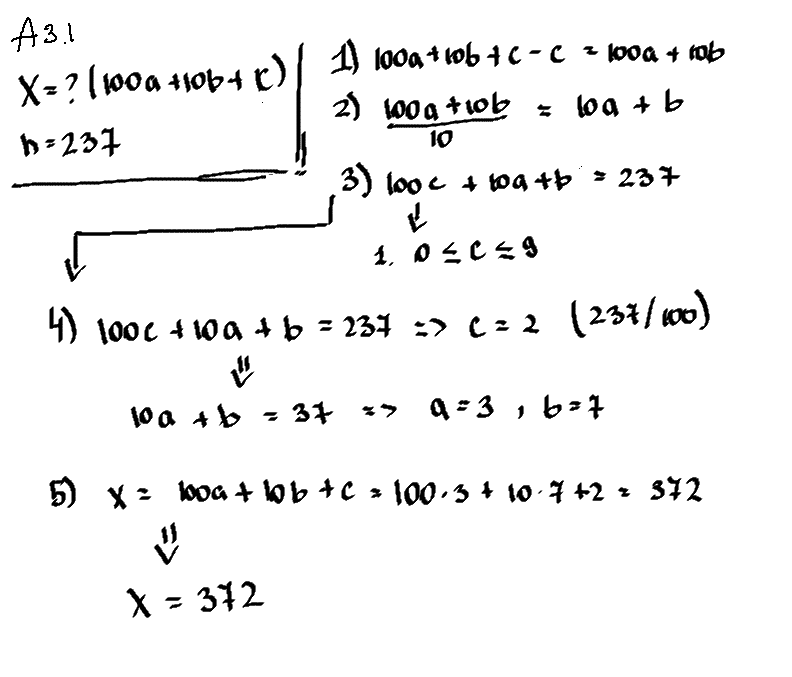 A3.1
X=?(100a+10b+c)
n=237
1) 100a+10b+c-c = 100a+10b
2) (100a+10b)/10 = 10a+b
3) 100c+10a+b = 237
1. 0≤c≤9
4) 100c+10a+b = 237 => c=2 (237/100)
10a+b = 37 => a=3, b=7
5) x = 100a+10b+c = 100·3+10·7+2 = 372
X = 372